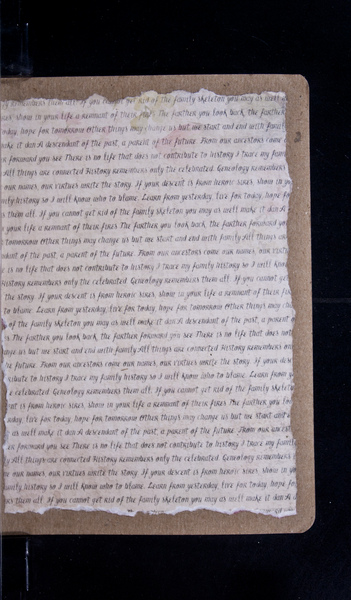 remembers them all. If you cannot get rid of the family skeleton you may as well m
show in your life a remnant of their fires. The farther you look back, the farther
today, hope for tomorrow Other things may change us but we start and end with famil
make it dan A descendant of the past, a parent of the future. From our ancestors come
forward you see There is no life that does not contribute to history I trace my fam
All things are connected History remembers only the celebrated. Genealogy remembers
our names, our virtues write the story. If your descent is from heroic sires, show in yo
history so I will know who to blame. Learn from yesterday, live for today, hope fo
them all. If you cannot get rid of the family skeleton you may as well make it dan A
your life a remnant of their fires The farther you look back, the farther forward yo
tomorrow Other things may change us but we start and end with family All things are
of the past, a parent of the future. From our ancestors come our names, our virtu
is no life that does not contribute to history I trace my family history so I will know
History remembers only the celebrated. Genealogy remembers them all. If you cannot get
the story. If your descent is from heroic sires, show in your life a remnant of their f
to blame. Learn from yesterday, live for today, hope for tomorrow Other things may
of the family skeleton you may as well make it dan A descendant of the past, a parent o
The farther you look back, the farther forward you see There is no life that does not
us but we start and end with family All things are connected History remembers on
future. From our ancestors come our names, our virtues write the story. If your desc
to history I trace my family history so I will know who to blame. Learn from y
celebrated. Genealogy remembers them all. If you cannot get rid of the family skeleto
is from heroic sires, show in your life a remnant of their fires. The farther you loo
live for today, hope for tomorrow Other things may change us but we start and
as well make it dan A descendant of the past, a parent of the future From our ancest
forward you see There is no life that does not contribute to history I trace my famil
All things are connected History remembers only the celebrated. Genealogy remembers
our names, our virtues write the story. If your descent is from heroic sires, show in yo
family history so I will know who to blame. Learn from yesterday, live for today, hope fo
them all. If you cannot get rid of the family skeleton you may as well make it dan A d